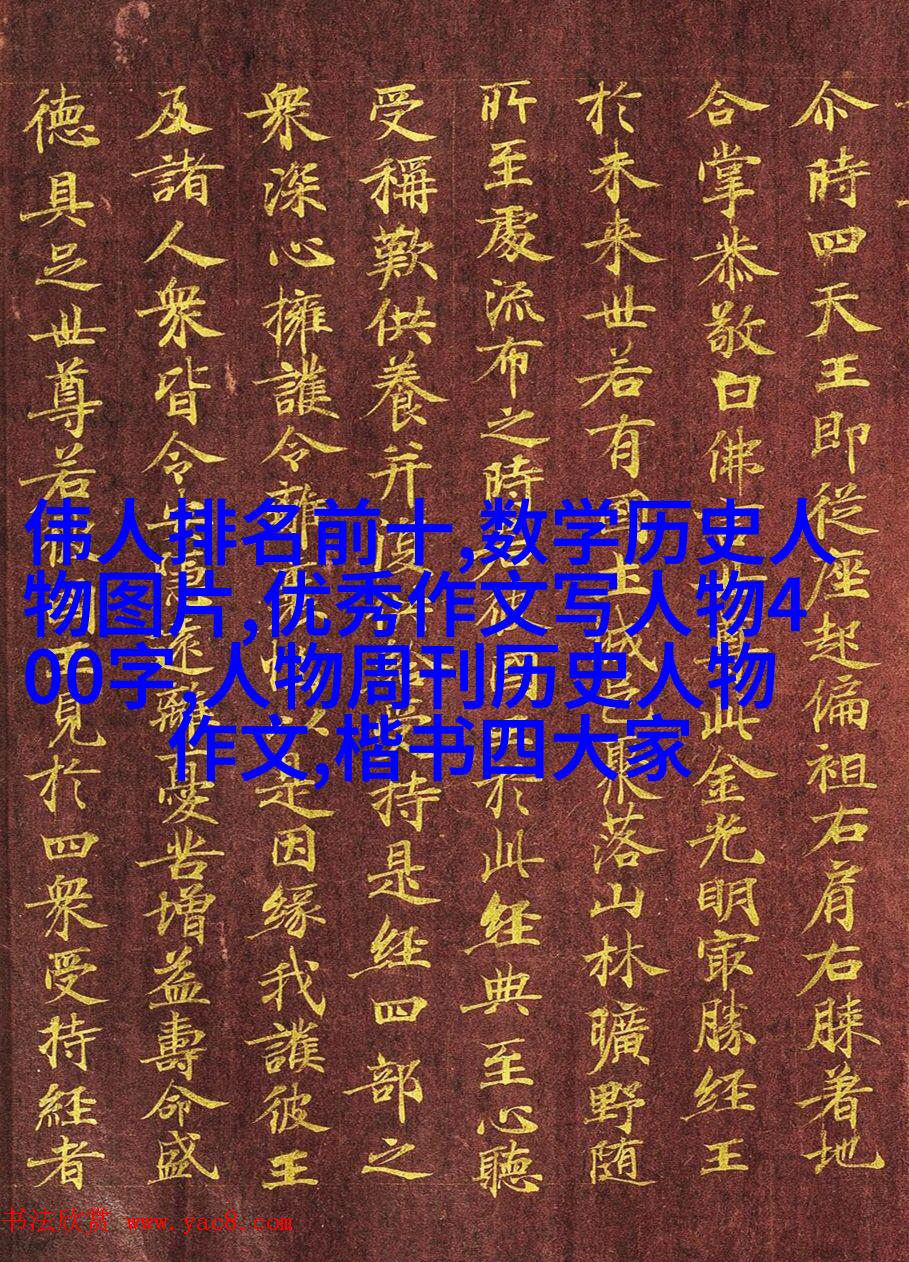 尒時四天王即從座起偏袒右肩右膝著地
合掌恭敬白佛尊此金光明冣勝經王
於未来世若有國土城邑聚落山林曠野随
所至處流布之時彼國於此経典至心聽
受稱歎供養并復供給受持是経四部之
衆深心擁護令離以是因縁我護彼王
及諸人衆皆令安隱逺離憂苦增益壽命威
徳具足世尊若王見於四衆受持経者
伟人排名前十,数学历史人
物图片,优秀作文写人物4
00字,人物周刊历史人物
作文,楷书四大家
书法欣赏 www.yac8.com